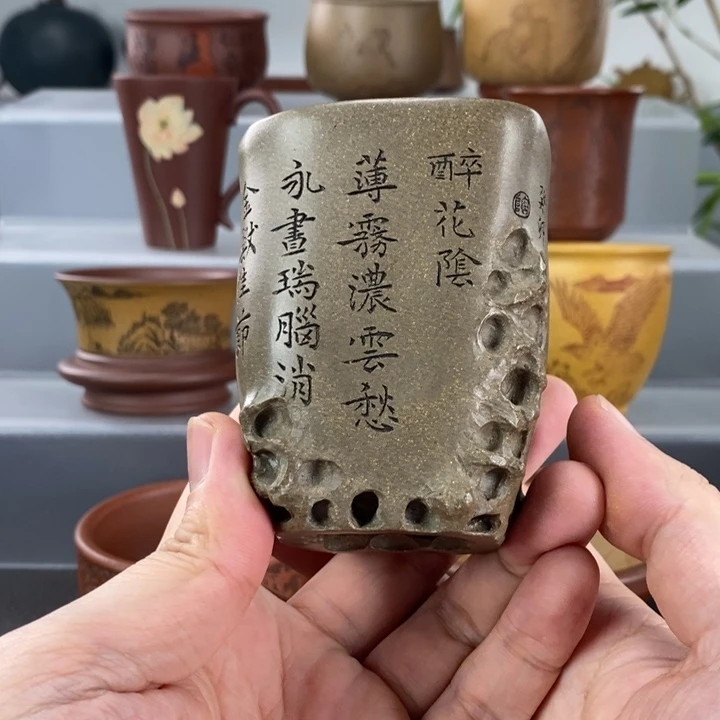 醉花陰
薄霧濃雲愁
永晝瑞腦消
金獸佳節